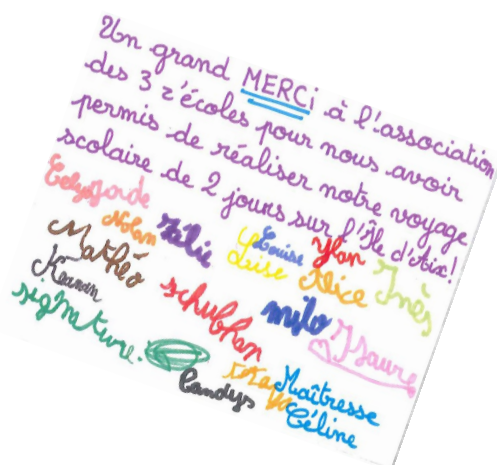 Un grand MERCi à l'association
des 3 z'écoles pour nous avoir
permis de réaliser notre voyage
scolaire de 2 jours sur l'Île d'Aix!
jade
Nolan
Louise
Ylan
Inès
Mathéo
Alice
milo
Isaure
schubhan
signature:
Candys
Maîtresse
Céline